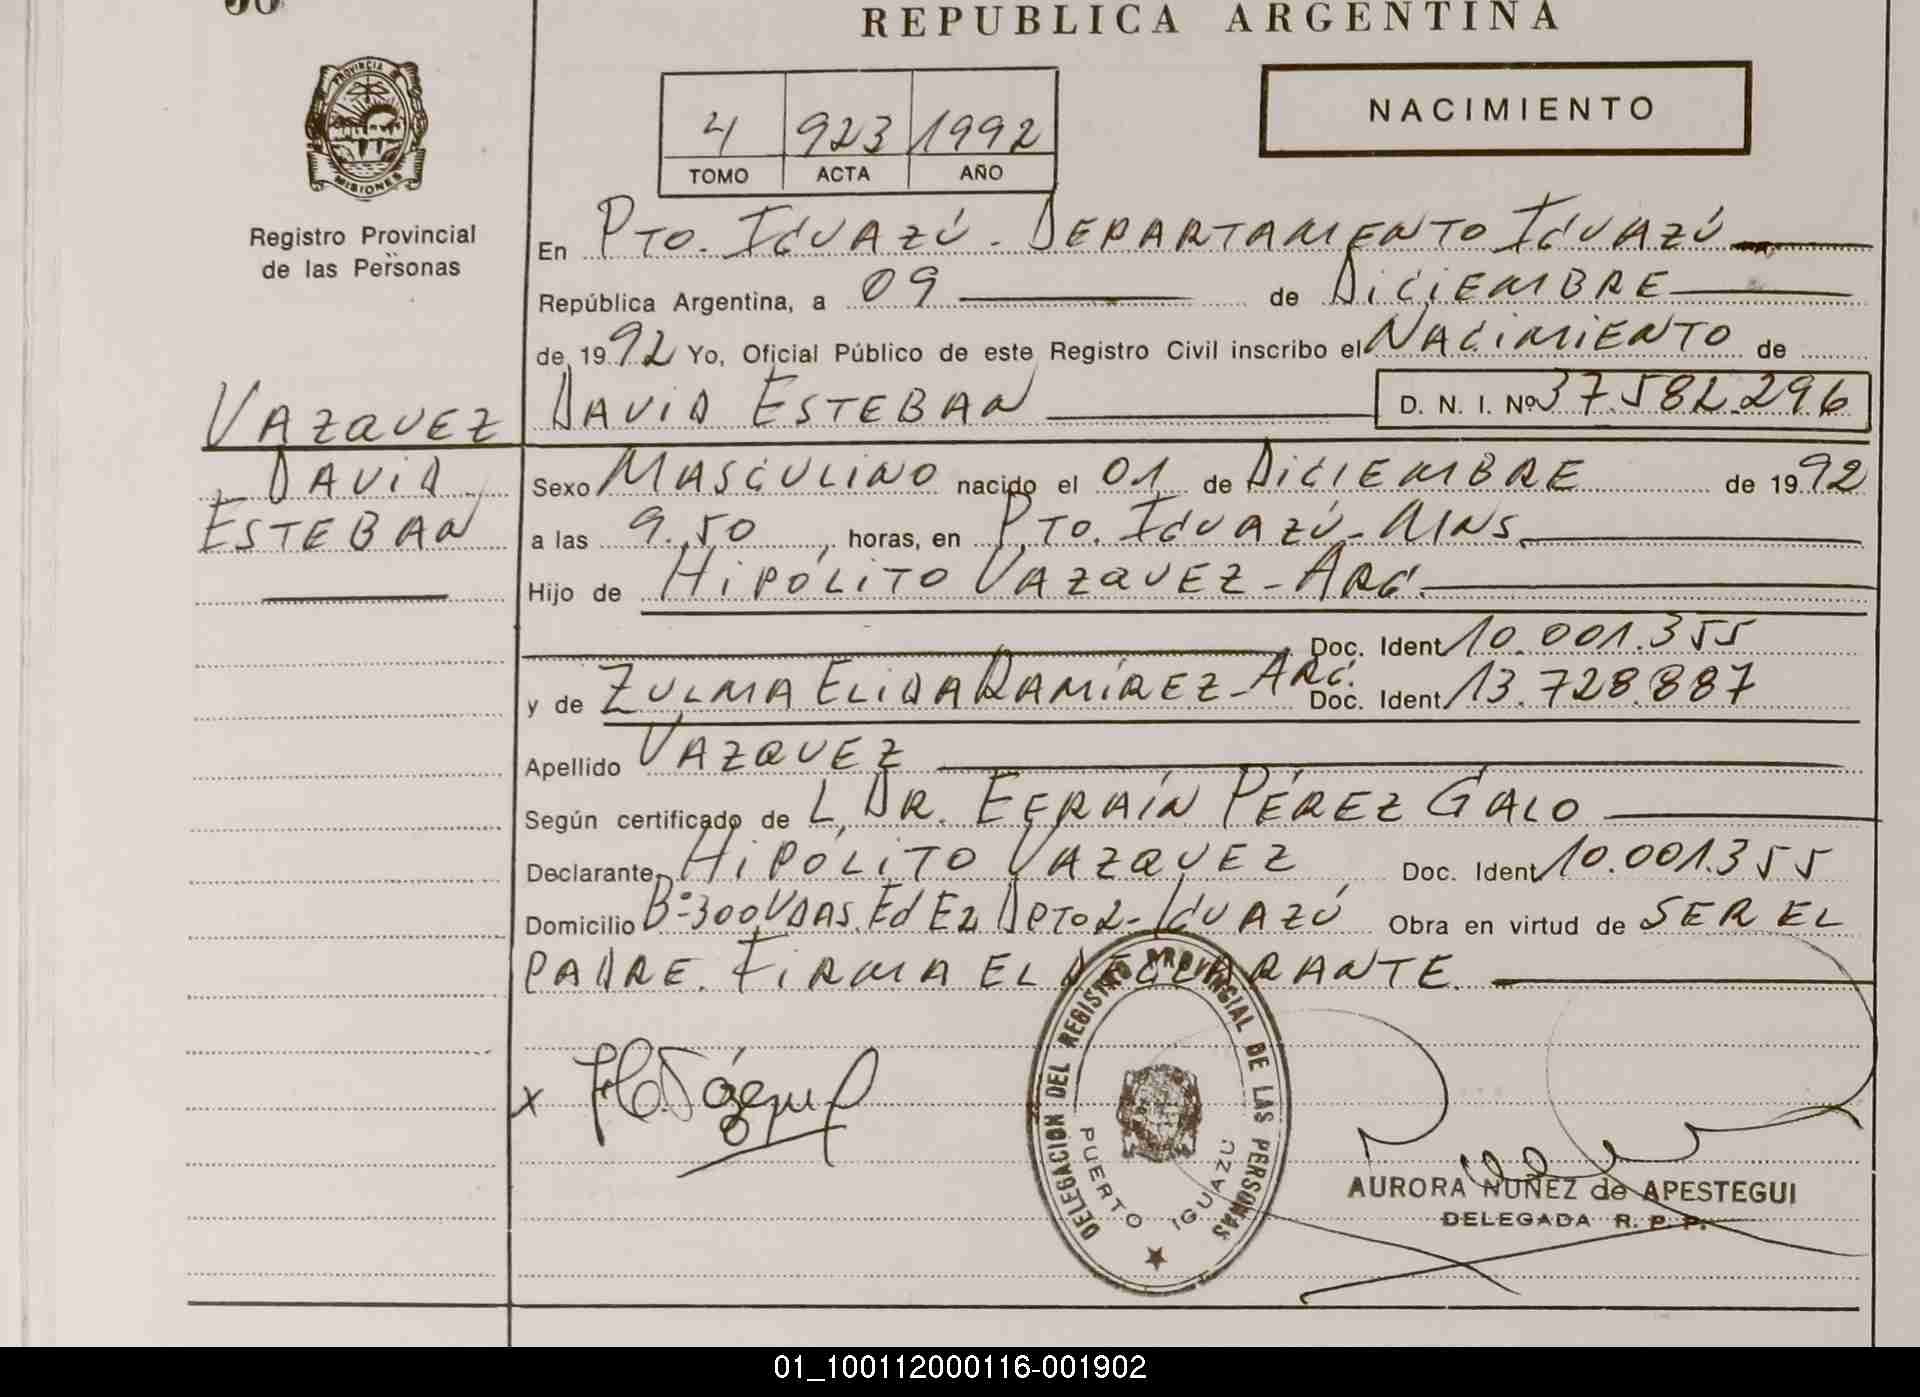 REPUBLICA ARGENTINA
PROVINCIA
MISIONES
Registro Provincial
de las Personas
4 923 1992
TOMO ACTA AÑO
NACIMIENTO
En Pto. Iguazú. Departamento Iguazú
República Argentina, a 09 de Diciembre
de 1992 Yo, Oficial Público de este Registro Civil inscribo el Nacimiento de
Vazquez David Esteban D. N. I. Nº 37.582.296
David
Esteban
Sexo Masculino nacido el 01 de Diciembre de 1992
a las 9.50 horas, en Pto. Iguazú - Mns.
Hijo de Hipólito Vazquez - Arg.
Doc. Ident. 10.001.355
y de Zulma Elida Ramírez - Arg. Doc. Ident. 13.728.887
Apellido Vazquez
Según certificado de L, Dr. Efraín Pérez Galo
Declarante Hipólito Vazquez Doc. Ident. 10.001.355
Domicilio Bº 300 Vdas. Ed E2 Dpto 2 - Iguazú Obra en virtud de ser el
padre. Firma el declarante.
x
DELEGACION DEL REGISTRO PROVINCIAL DE LAS PERSONAS
PUERTO IGUAZU
AURORA NUÑEZ de APESTEGUI
DELEGADA R. P. P.
01_100112000116-001902